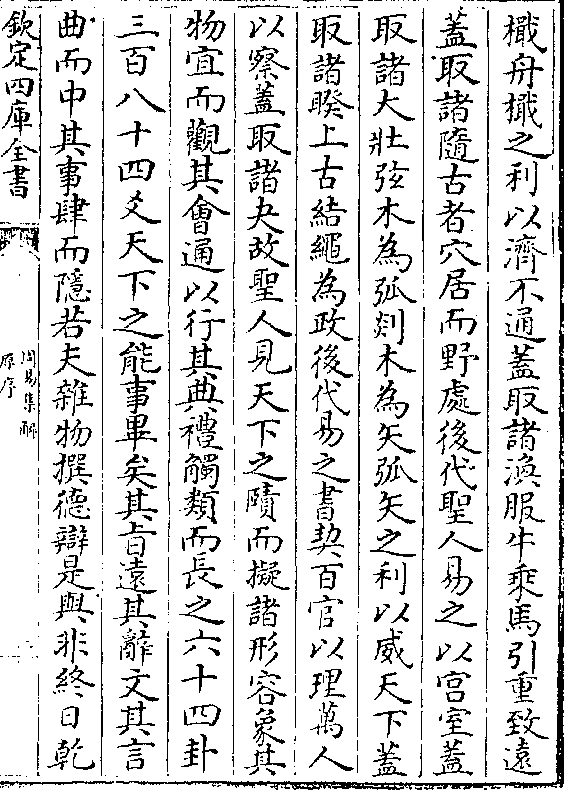 檝舟檝之利以濟不通蓋取諸渙服牛乘馬引重致遠
蓋取諸隨古者穴居而野處後代聖人易之以宫室蓋
取諸大壯弦木為弧剡木為矢弧矢之利以威天下蓋
取諸睽上古結繩為政後代易之書契百官以理萬人
以察蓋取諸夬故聖人見天下之賾而擬諸形容象其
物宜而觀其會通以行其典禮觸類而長之六十四卦
三百八十四爻天下之能事畢矣其旨遠其辭文其言
曲而中其事肆而隱若夫雜物撰德辯是與非終日乾
欽定四庫全書
周易集解
原序